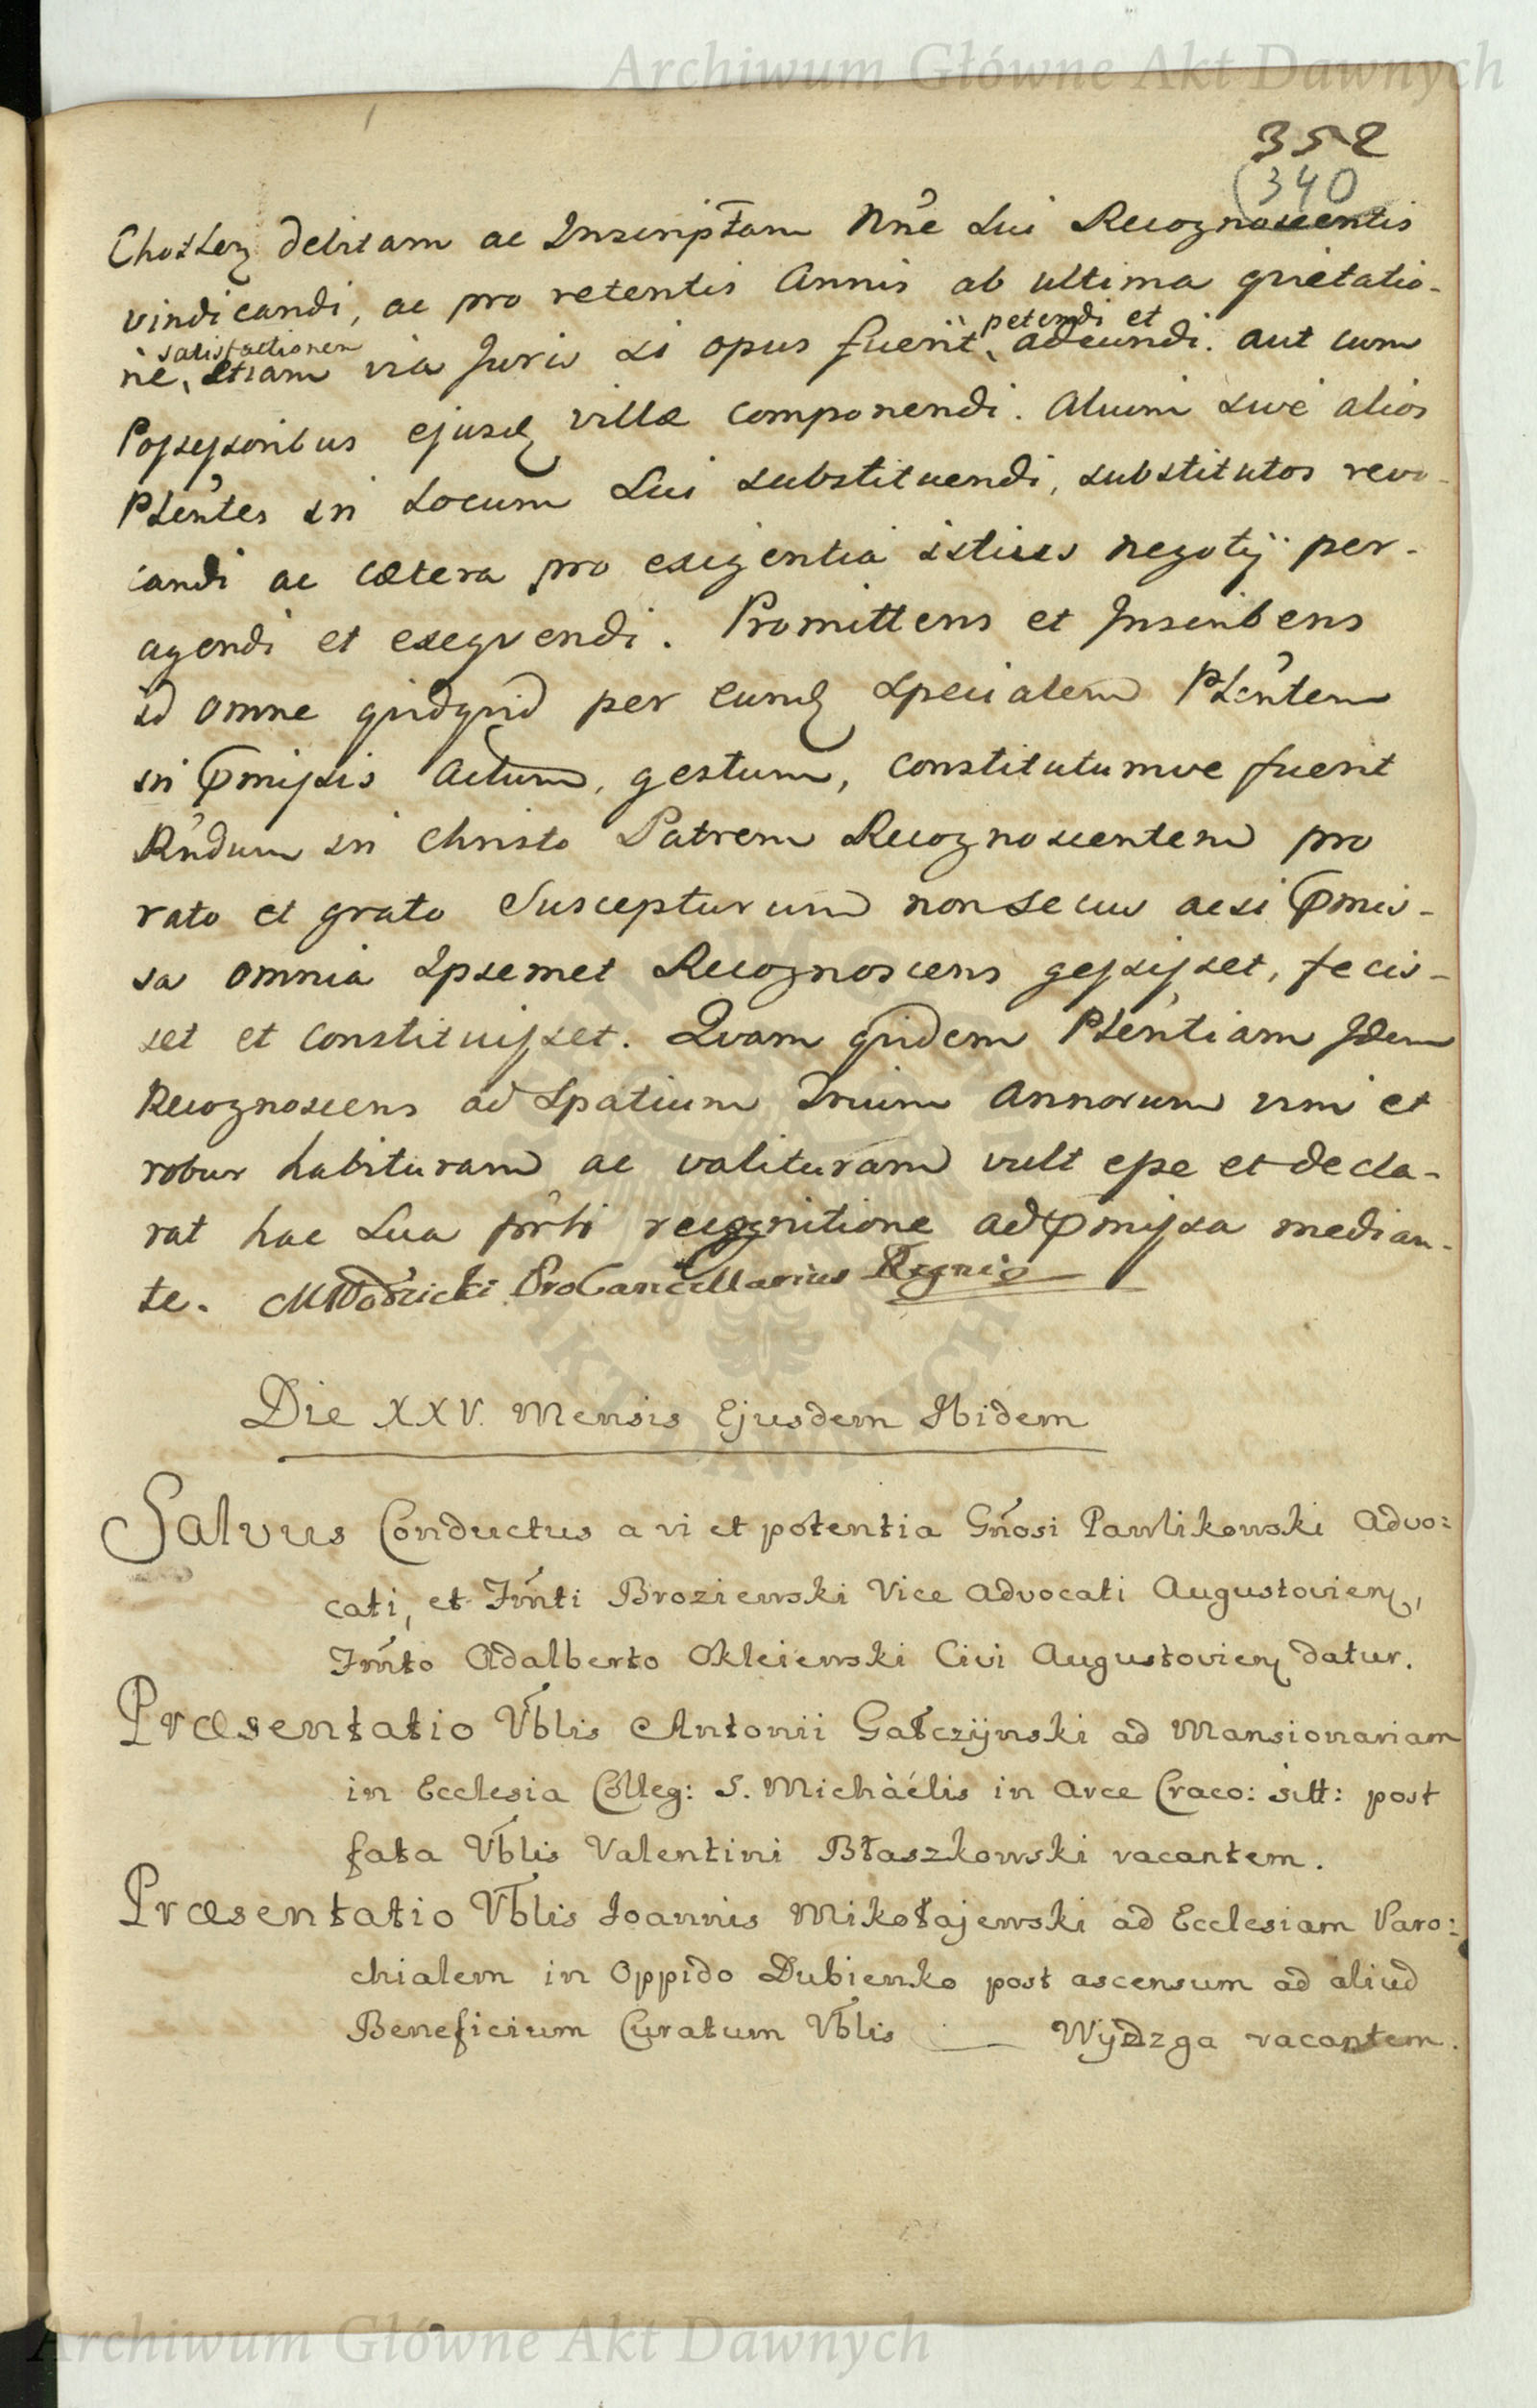 Archiwum Główne Akt Dawnych
352
(340
debitam ac Inscriptam Nn̄e Sui Recognoscentis
vindicandi, ac pro retentis Annis ab ultima quietatio-
satisfactionem petendi et
ne, etiam via Juris si opus fuerit, adeundi. aut cum
Possessoribus ejusd villæ componendi. Alium sive alios
Plentes in Locum Sui substituendi, substitutos revo-
candi ac cætera pro exigentia istius negotij per-
agendi et exeqvendi. Promittens et Inscribens
id omne quidquid per eumd specialem Plentem
in pmissis actum, gestum, constitutumve fuerit
Rndum in Christo Patrem Recognoscentem pro
rato et grato Suscepturum non secus acsi pmis-
sa omnia Ipsemet Recognoscens gessisset, fecis-
set et constituisset. Qvam quidem Plentiam Idem
Recognoscens ad Spatium Trium Annorum vim et
robur habituram ac valituram vult esse et decla-
rat hac Sua pnti recognitione ad pmissa median-
te. MWodzicki ProCancellarius Regni
Die XXV. Mensis Ejusdem Ibidem
Salvus Conductus a vi et potentia Gnosi Pawlikowski Advo:
cati, et Fmti Broziewski Vice Advocati Augustovien,
Fmto Adalberto Okleiewski Civi Augustovien datur.
Præsentatio Vblis Antonii Gałczÿnski ad Mansionariam
in Ecclesia Colleg: S. Michàélis in Arce Craco: sitt: post
fata Vblis Valentini Błaszkowski vacantem.
Præsentatio Vblis Joannis Mikołajewski ad Ecclesiam Paro:
chialem in Oppido Dubienko post ascensum ad aliud
Beneficium Curatum Vblis — Wÿdzga vacantem.
Archiwum Główne Akt Dawnych